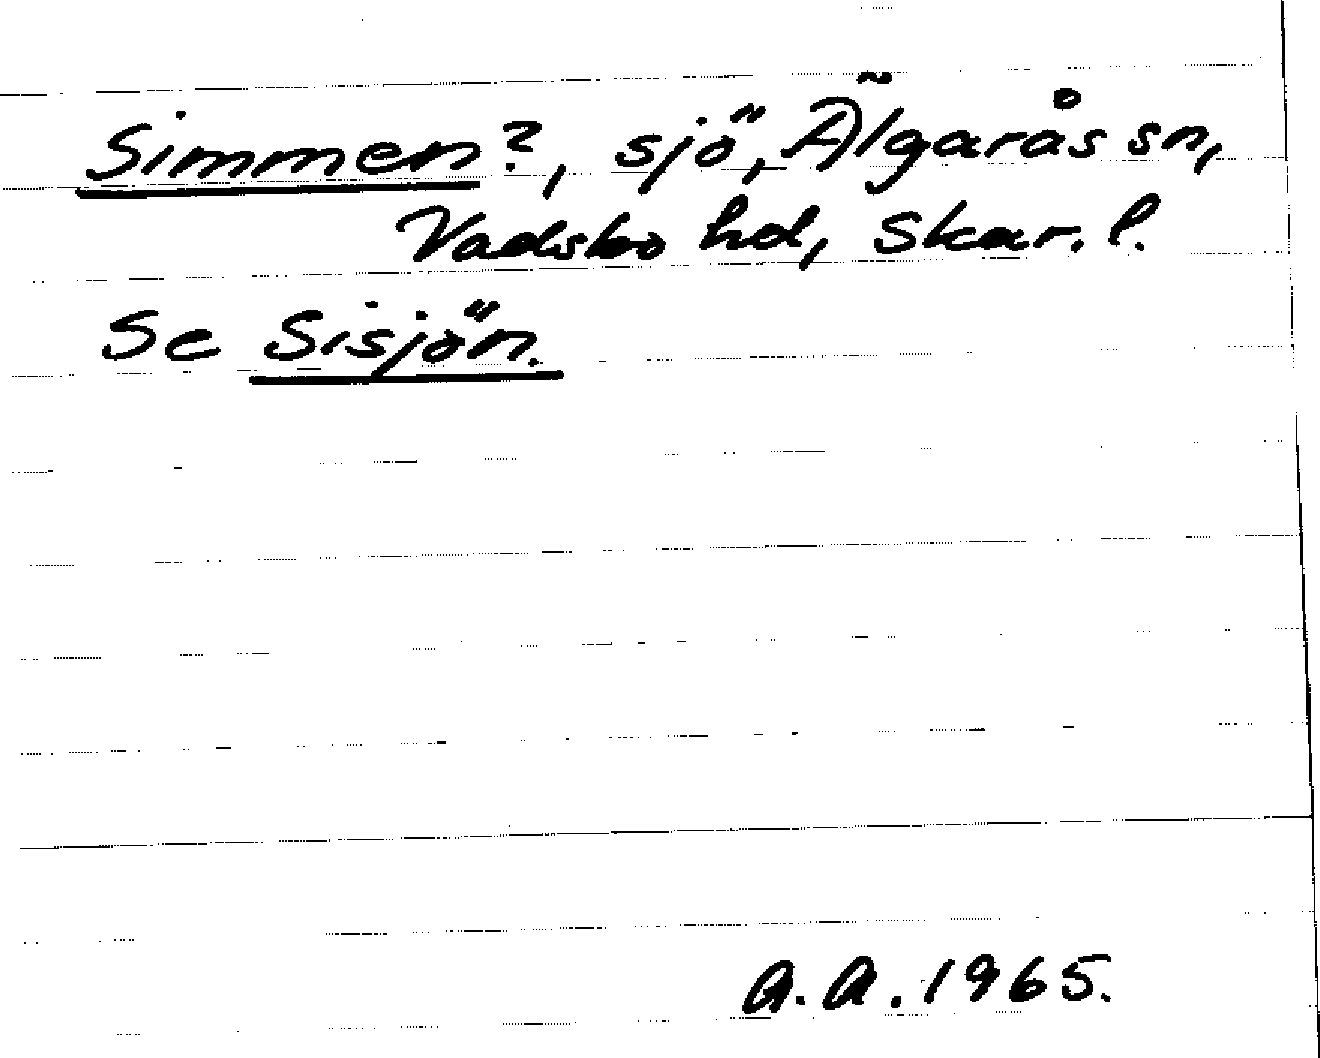 Simmen?, sjö, Älgarås sn,
Vadsbo hd, Skar. l.
Se Sisjön.
A.A. 1965.